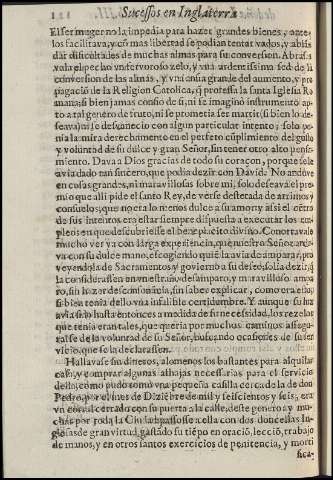 Sucessos en Inglaterra
El ser muger no la impedia para hazer grandes bienes, antes
los facilitava, y cõ mas libertad se podian tentar vados, y abiā
dar dificultades de muchas almas para su conversion. Abrasa
vala el pecho un fervoroso zelo, y una ardentissima sed de la
conversion de las almas, y un ansia grande del aumento, y pro
pagaciõ de la Religion Catolica, q̃ professa la santa Iglesia Ro
mana; si bien jamas confio de si, ni se imaginò instrumento ap-
to a tal genero de fruto, ni se prometia ser martir (si bien lo de-
seava) ni se desvanecio con algun particular intento; solo po-
nia la mira derechamente en el perfeto cũplimiento del gusto
y voluntad de su dulce y gran Señor, sin tener otro alto pensa-
miento. Dava a Dios gracias de todo su coraçon, porque se le
avia dado tan sincero, que podia dezir con David. No anduve
en cosas grandes, ni maravillosas sobre mi, solo deseava el pre
mio que alli pide el santo Rey, de verse destetada de arrimos y
consuelos, que no era lo menos dulce a su amor y assi el cētro
de sus intentos era estar siempre dispuesta a executar los em-
pleos en que descubriesse el beneplacito divino. Confortavale
mucho ver ya con larga experiencia, que nuestro Señor anda-
va con su dulce mano, escogiendo quiē la avia de amparar, pro
veyendola de Sacramentos y govierno a su deseosa lealtad;
la consideraciõ en un estraño desamparo, y maravilloso ampa
ro, sin hazer desconfiança, sin saber explicar, como era ello,
si bien tenia dello una infalible certidumbre. Y aunque su luz
avia sido hasta entonces a medida de su necesidad, los rezelos
que tenia eran tales, que queria por muchos caminos assegu-
rarse de la voluntad de su Señor, buscando ocasiones de su ser
vicio, que se la declarassen.
Hallavase sin dineros, alomenos los bastantes para alquilar
casa, y comprar algunas alhajas necessarias para el servicio
della, como pudo tomò una pequeña casilla cerca de la de don
Pedro, por el mes de Diziēbre de mil y seiscientos y seis, era
un corral cerrado con su puerta a la calle, deste genero ay mu-
chas por toda la Ciudad, passose a ella con dos doncellas In-
glesas de gran virtud, gastãdo su tiēpo en oraciõ, lecciõ, trabajo
de manos, y en otros santos exercicios de penitencia, y morti
fica-